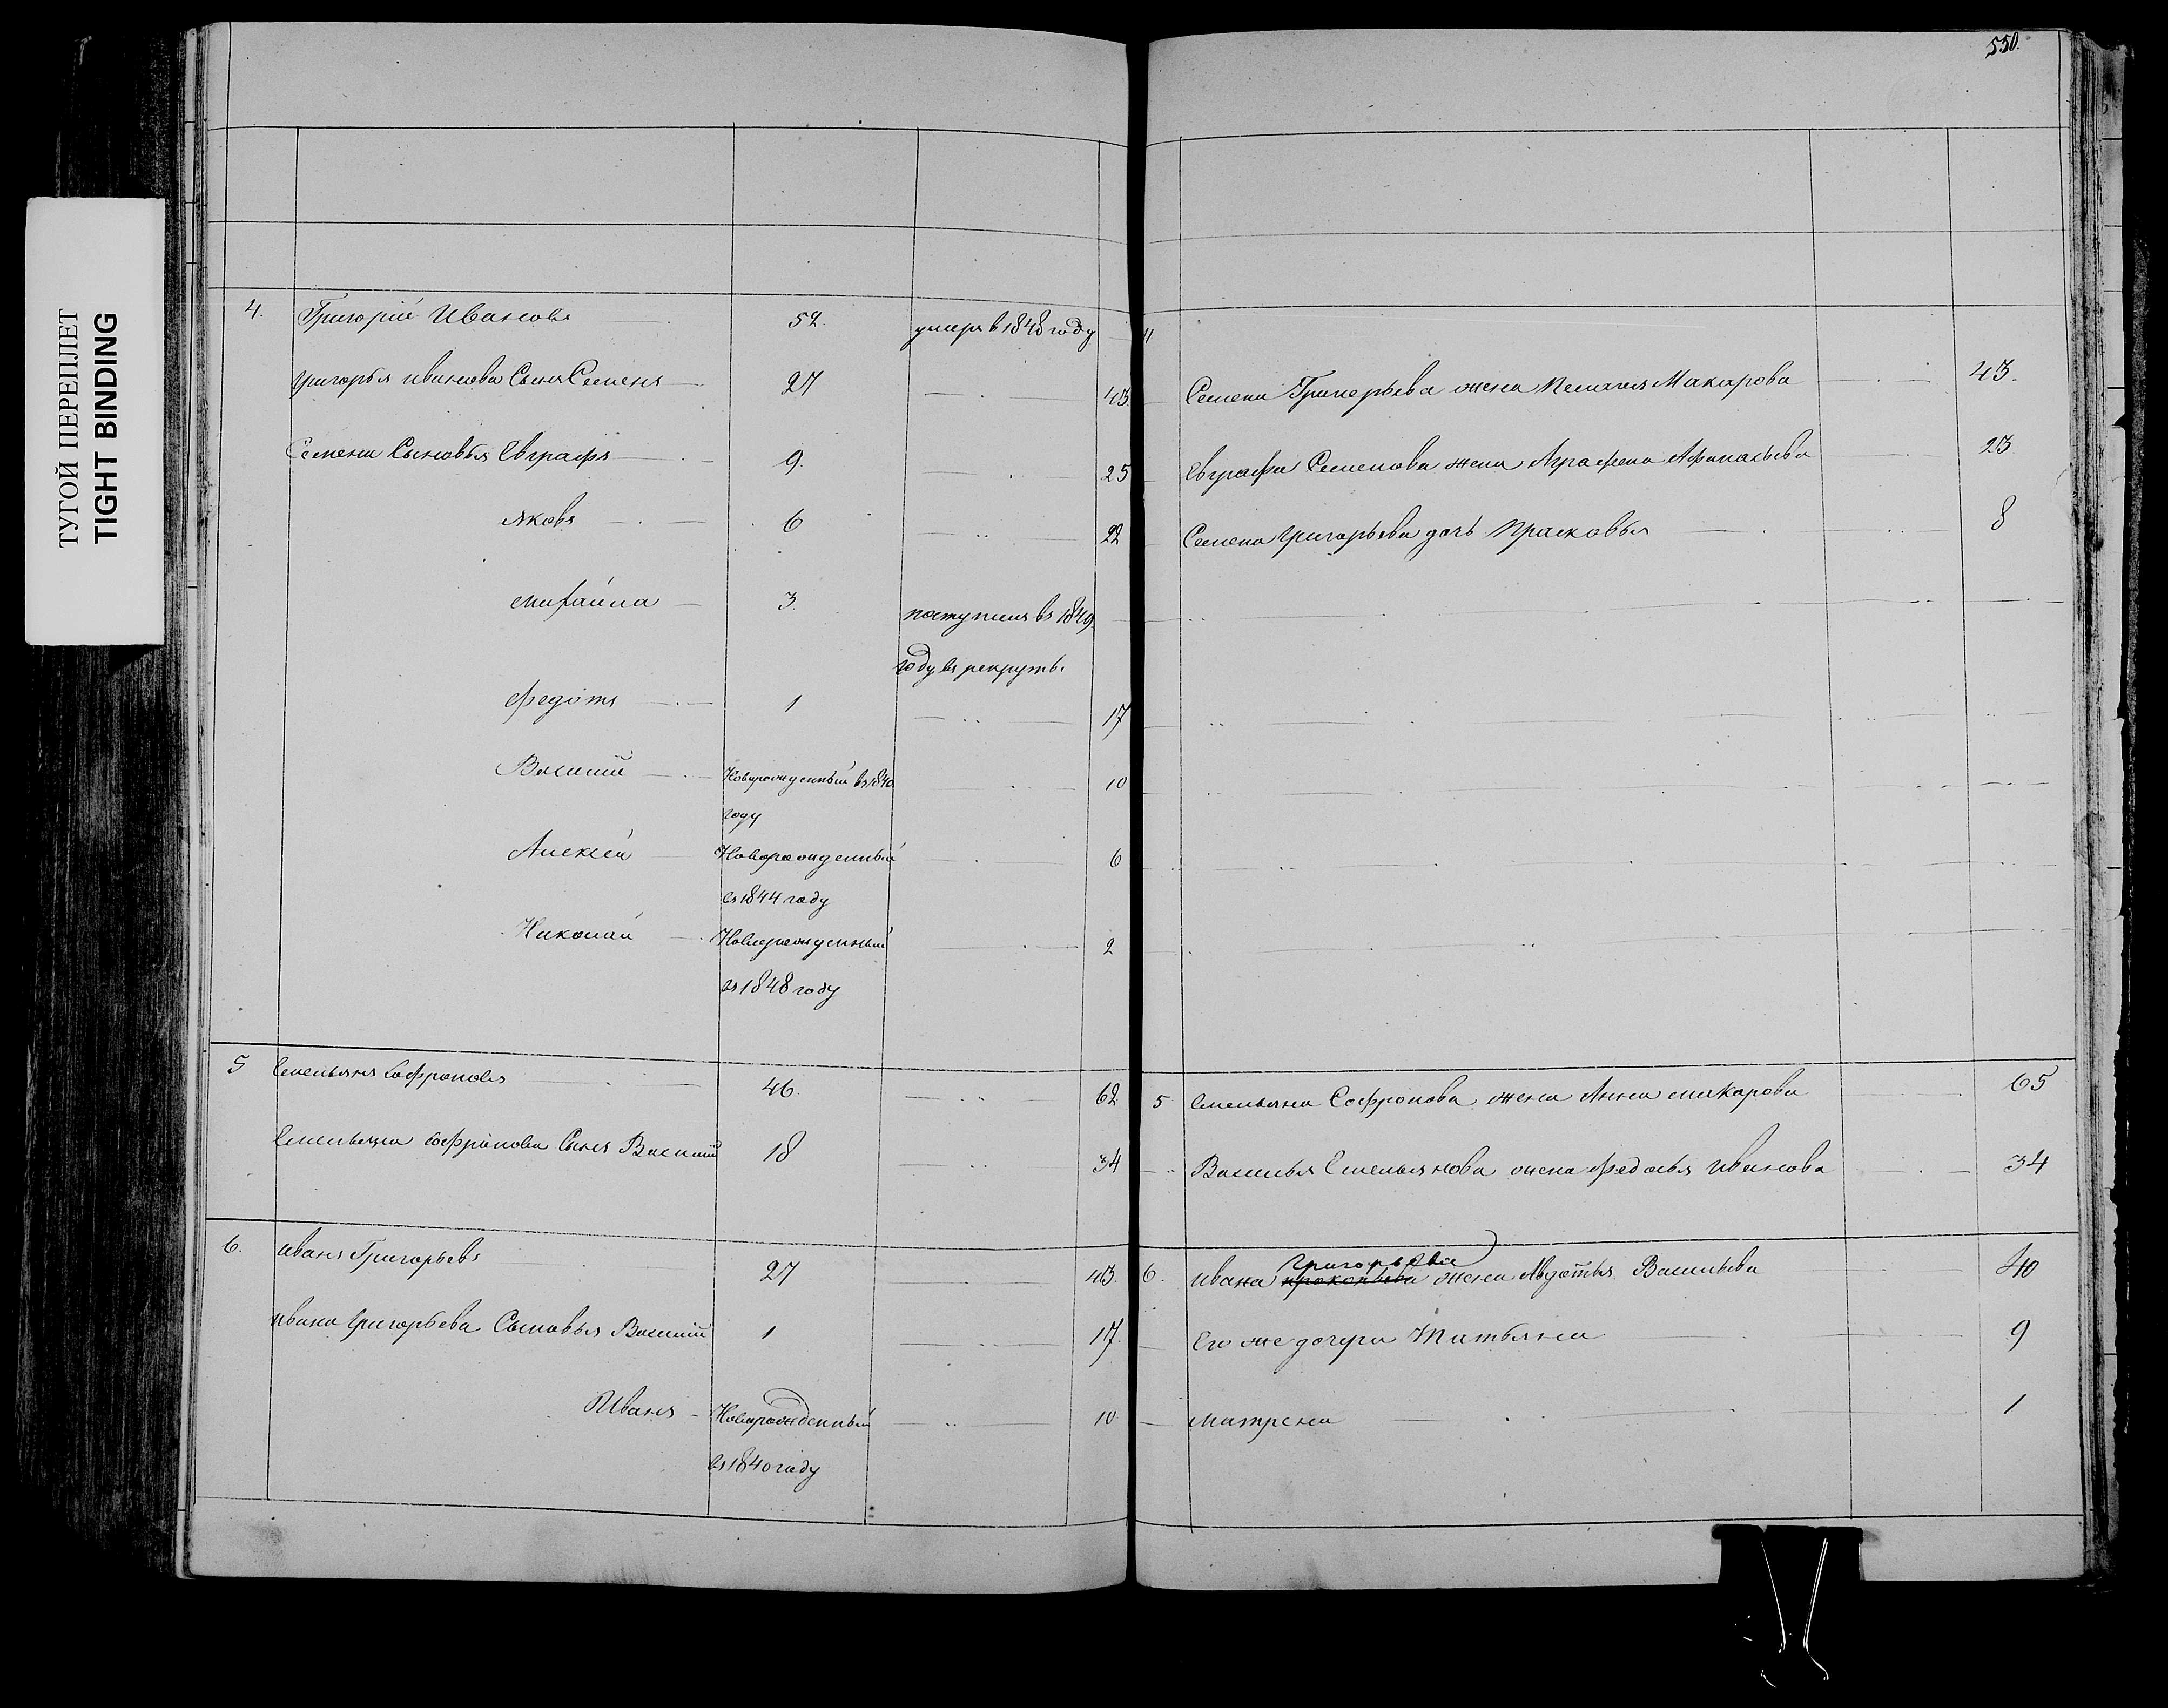 ТУГОЙ ПЕРЕПЛЕТ
TIGHT BINDING
550.
4. Григорій Ивановъ 52. умеръ в 1848 году
Григорья иванова Сынъ Семенъ 27 43.
Семена Сыновья Евграфъ 9. 25
Яковъ 6 22
михайла 3. поступилъ въ 1849
году въ рекруты
федотъ 1 17
Василий Новорожденный въ 1840 10
году
Алексей Новорожденный 6
въ 1844 году
Николай Новорожденный 2
въ 1848 году
5 Емельянъ Софроновъ 46. 62
Емельяна Софронова Сынъ Василий 18 34
6. иванъ Григорьевъ 27 43.
ивана Григорьева Сыновья Василий 1 17.
Иванъ Новорожденный 10.
въ 1840 году
4
Семена Григорьева жена Пелагея Макарова 43.
Евграфа Семенова жена Аграфена Афанасьева 23
Семена Григорьева дочь Прасковья 8
5 Емельяна Софронова жена Анна макарова 65
Василья Емельянова жена федосья иванова 34
Григорьева
6. ивана прокопьева жена Авдотья Васильева 40
Его же дочери Татьяна 9
матрена 1